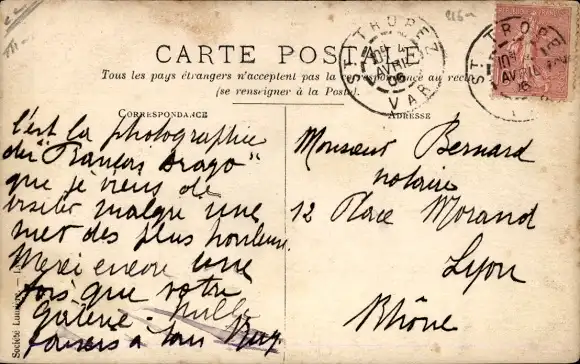 CARTE POSTALE
Tous les pays étrangers n'acceptent pas la correspondance au recto
(se renseigner à la Poste).
CORRESPONDANCE
ADRESSE
ST. TROPEZ
10 4
AVRIL
06
VAR
ST. TROPEZ
10
AVRIL
c'est la photographie
du "Francas Arago"
que je viens de
visiter malgré une
mer des plus houleuse.
Merci encore une
fois que votre
galerie. Mille
baisers à tous
Monsieur Bernard
notaire
12 Place Morand
Lyon
Rhône
Société Lumière